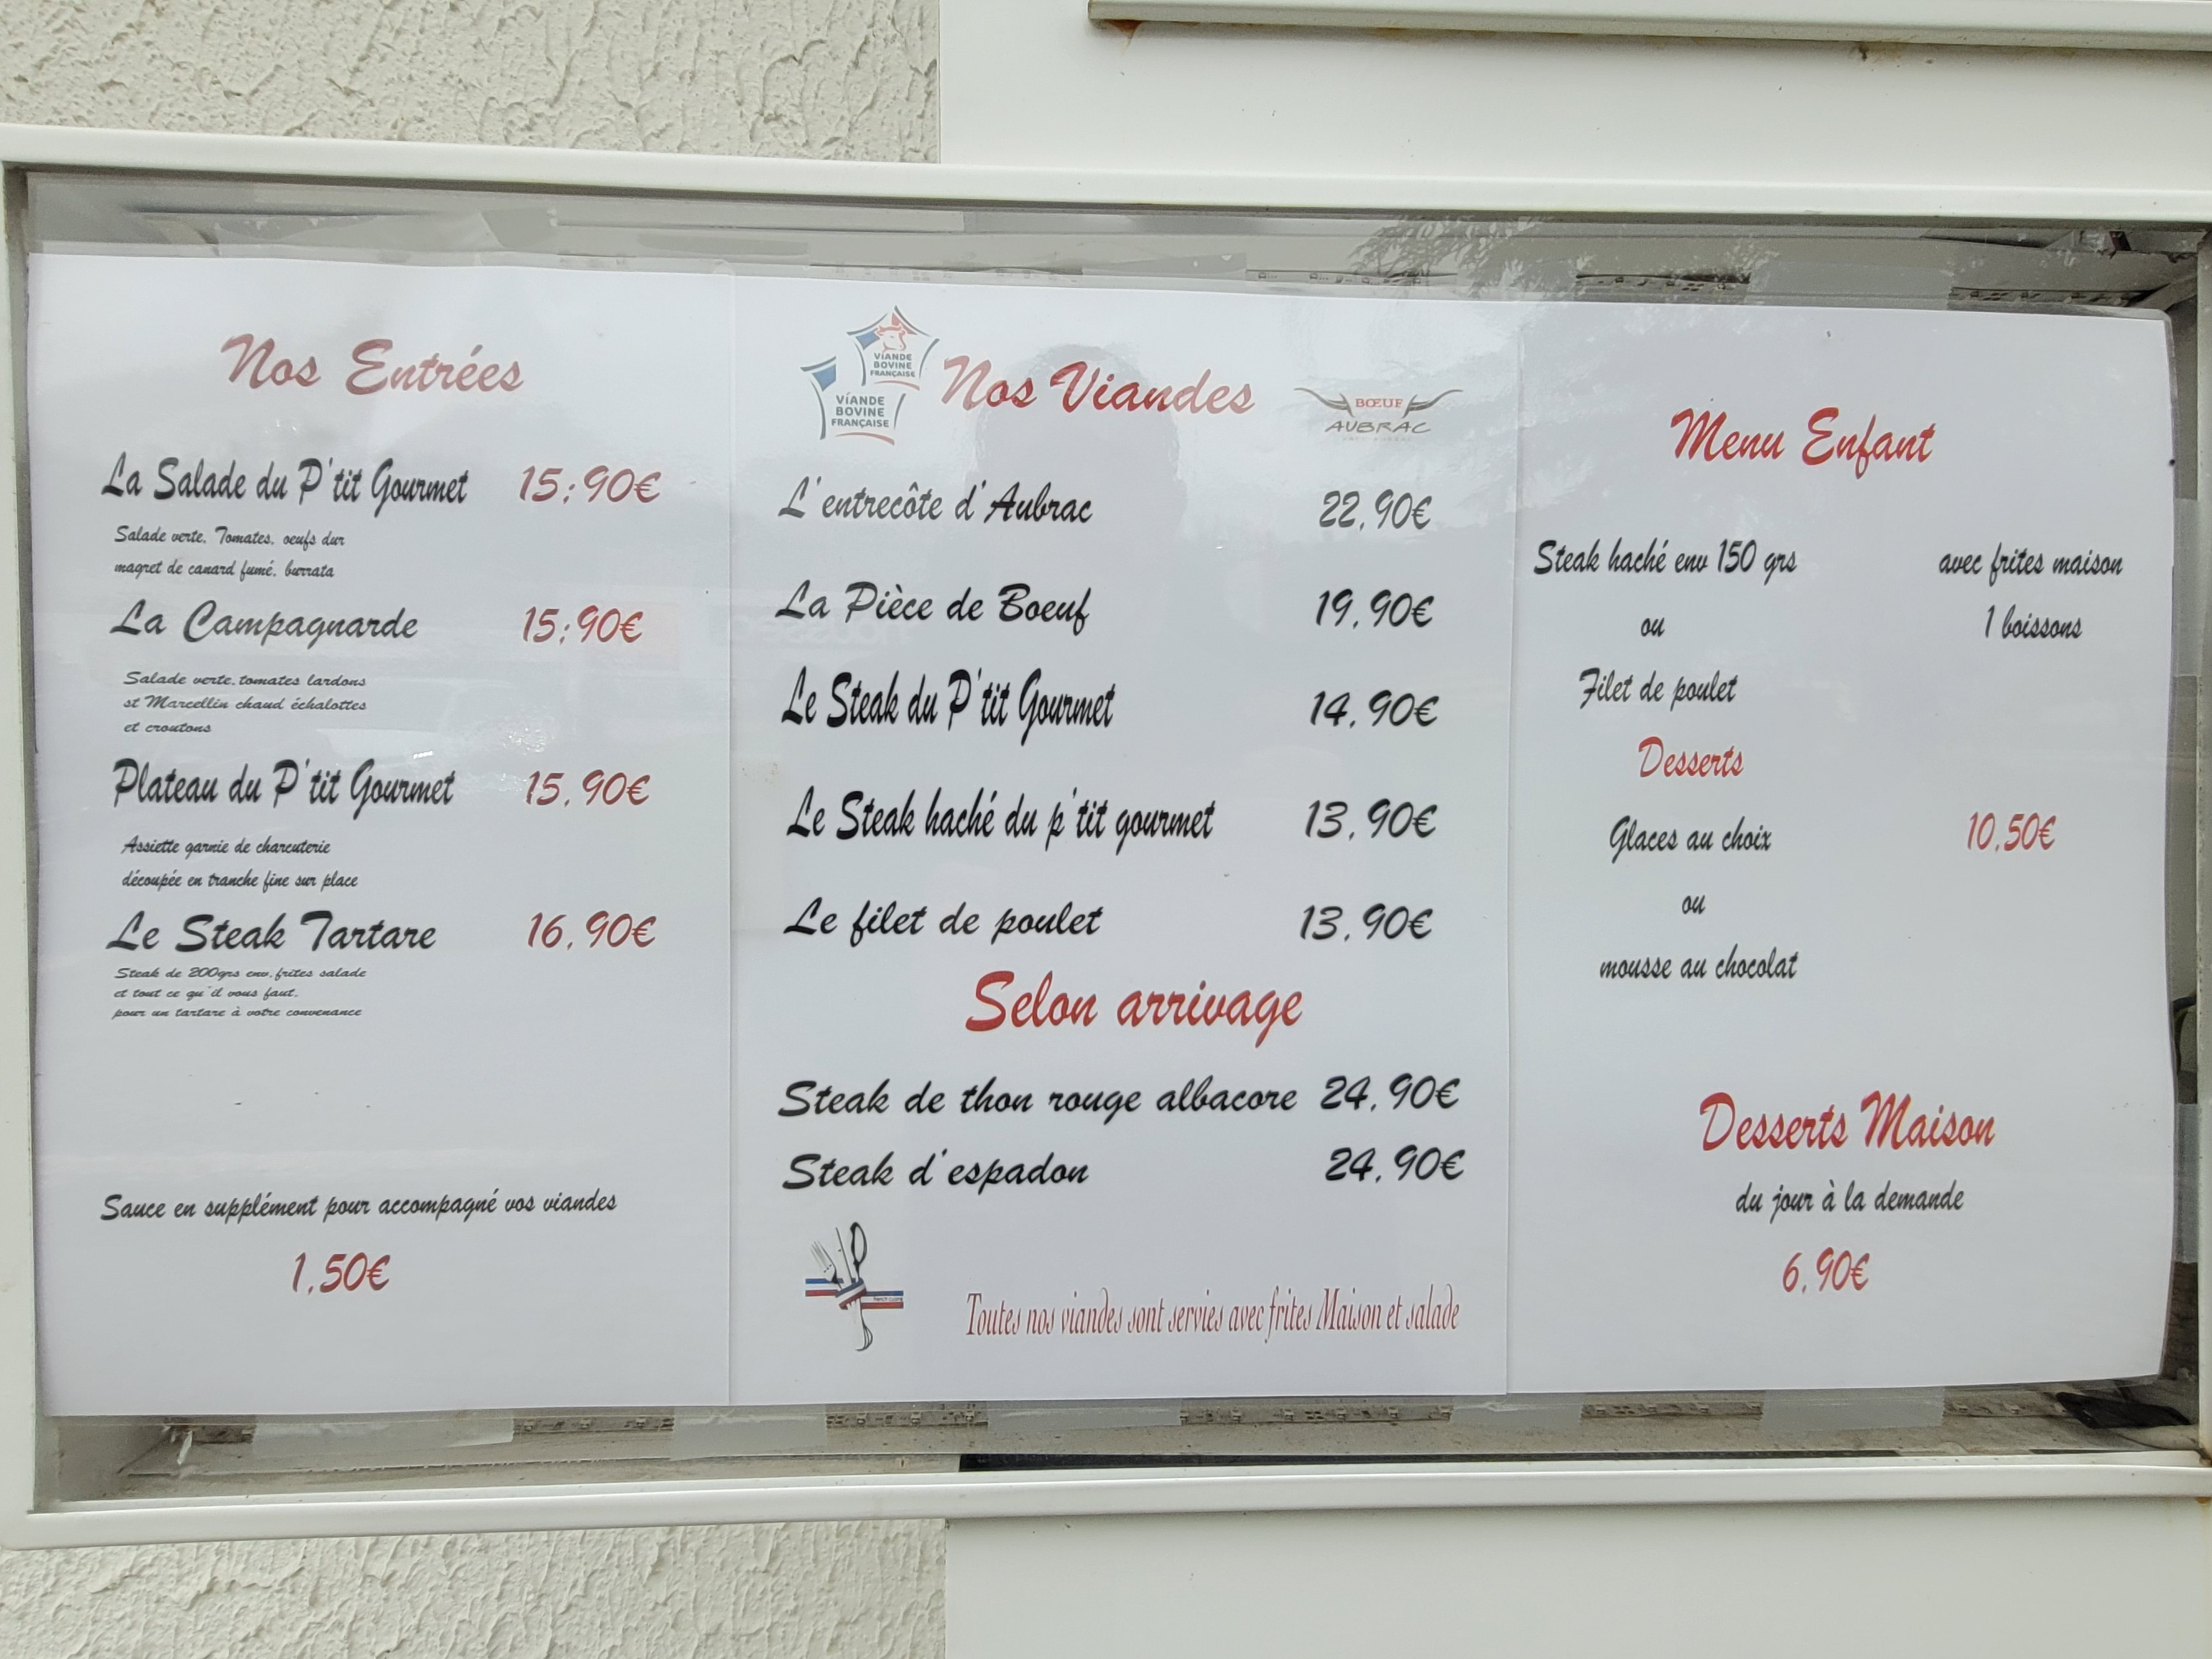 Nos Entrées
La Salade du P'tit Gourmet 15;90€
Salade verte. Tomates. oeufs dur
magret de canard fumé. burrata
La Campagnarde 15;90€
Salade verte.tomates lardons
st Marcellin chaud échalottes
et croutons
Plateau du P'tit Gourmet 15.90€
Assiette garnie de charcuterie
découpée en tranche fine sur place
Le Steak Tartare 16.90€
Steak de 200grs env.frites salade
et tout ce qu'il vous faut.
pour un tartare à votre convenance
Sauce en supplément pour accompagné vos viandes
1.50€
VIANDE
BOVINE
FRANÇAISE
VIANDE
BOVINE
FRANÇAISE
Nos Viandes
BŒUF
AUBRAC
L'entrecôte d'Aubrac 22.90€
La Pièce de Boeuf 19.90€
Le Steak du P'tit Gourmet 14.90€
Le Steak haché du p'tit gourmet 13.90€
Le filet de poulet 13.90€
Selon arrivage
Steak de thon rouge albacore 24.90€
Steak d'espadon 24.90€
Toutes nos viandes sont servies avec frites Maison et salade
Menu Enfant
Steak haché env 150 grs avec frites maison
ou 1 boissons
Filet de poulet
Desserts
Glaces au choix 10.50€
ou
mousse au chocolat
Desserts Maison
du jour à la demande
6.90€